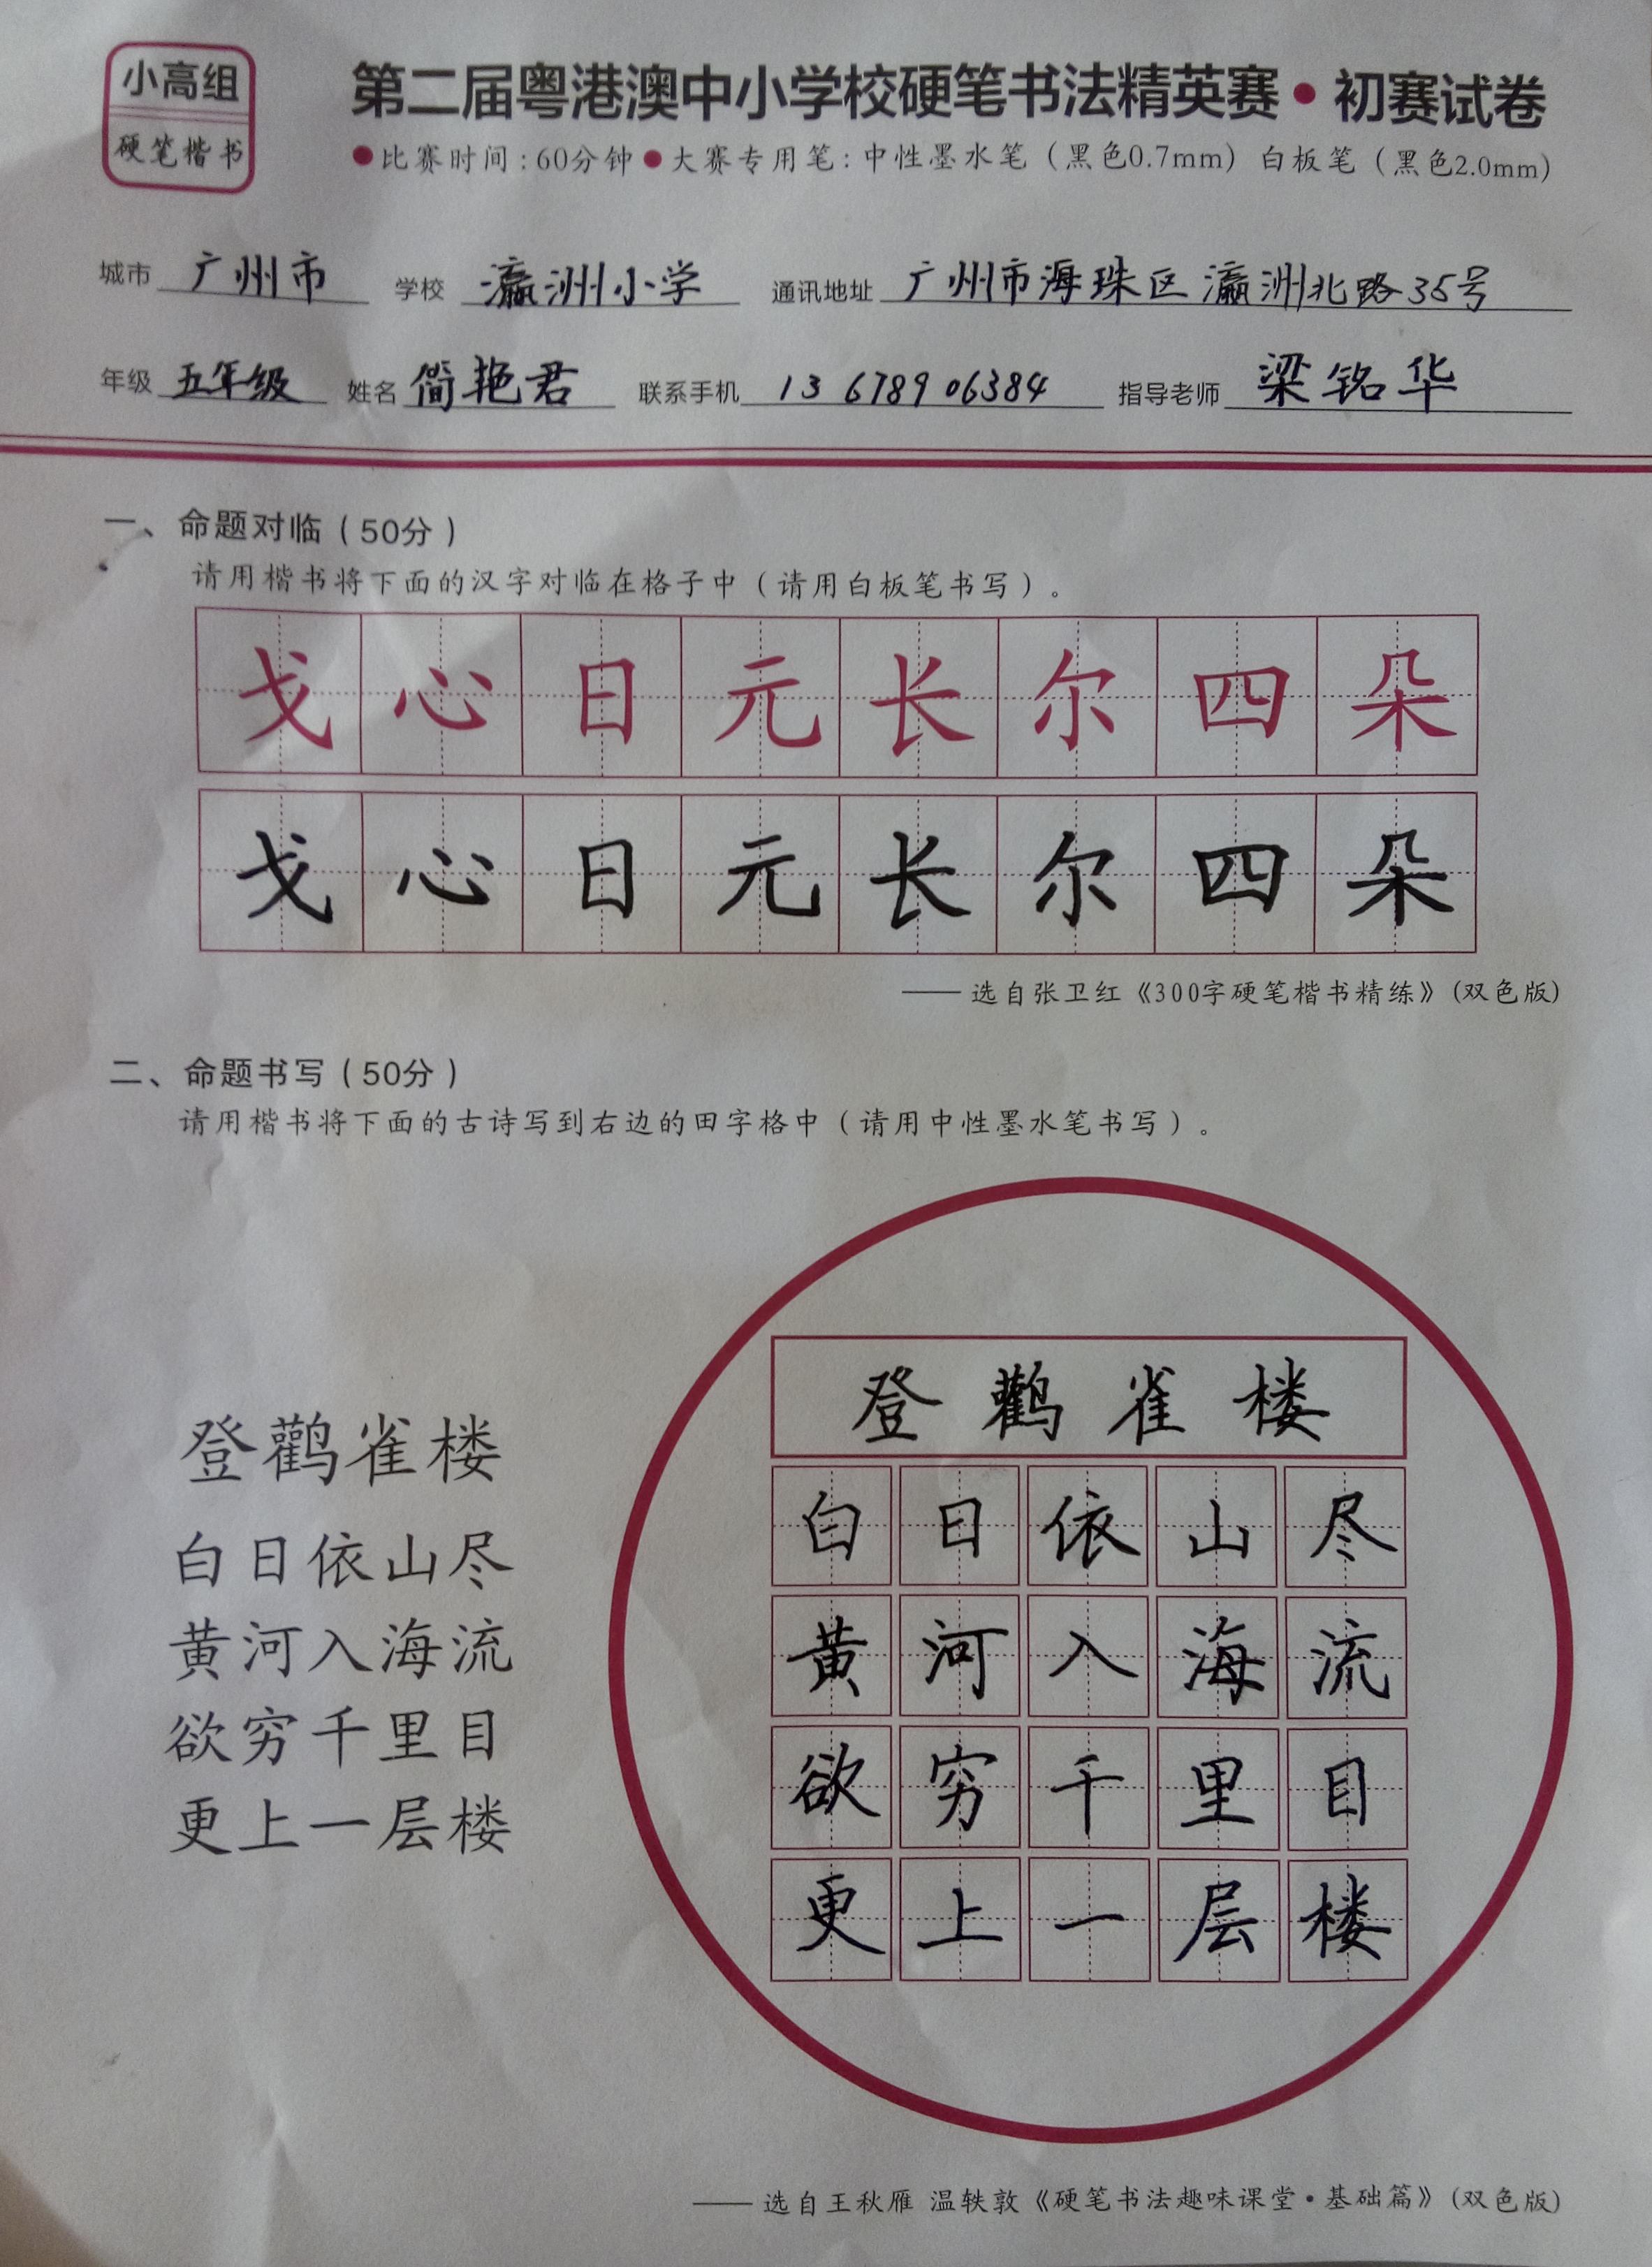 小高组
硬笔楷书
第二届粤港澳中小学校硬笔书法精英赛•初赛试卷
●比赛时间:60分钟●大赛专用笔:中性墨水笔(黑色0.7mm) 白板笔(黑色2.0mm)
城市 广州市 学校 瀛洲小学 通讯地址 广州市海珠区瀛洲北路35号
年级 五年级 姓名 简艳君 联系手机 13678906384 指导老师 梁铭华
一、命题对临(50分)
请用楷书将下面的汉字对临在格子中(请用白板笔书写)。
戈心日元长尔四朵
戈心日元长尔四朵
——选自张卫红《300字硬笔楷书精练》(双色版)
二、命题书写(50分)
请用楷书将下面的古诗写到右边的田字格中(请用中性墨水笔书写)。
登鹳雀楼
白日依山尽
黄河入海流
欲穷千里目
更上一层楼
登鹳雀楼
白日依山尽
黄河入海流
欲穷千里目
更上一层楼
——选自王秋雁 温轶敦《硬笔书法趣味课堂•基础篇》(双色版)